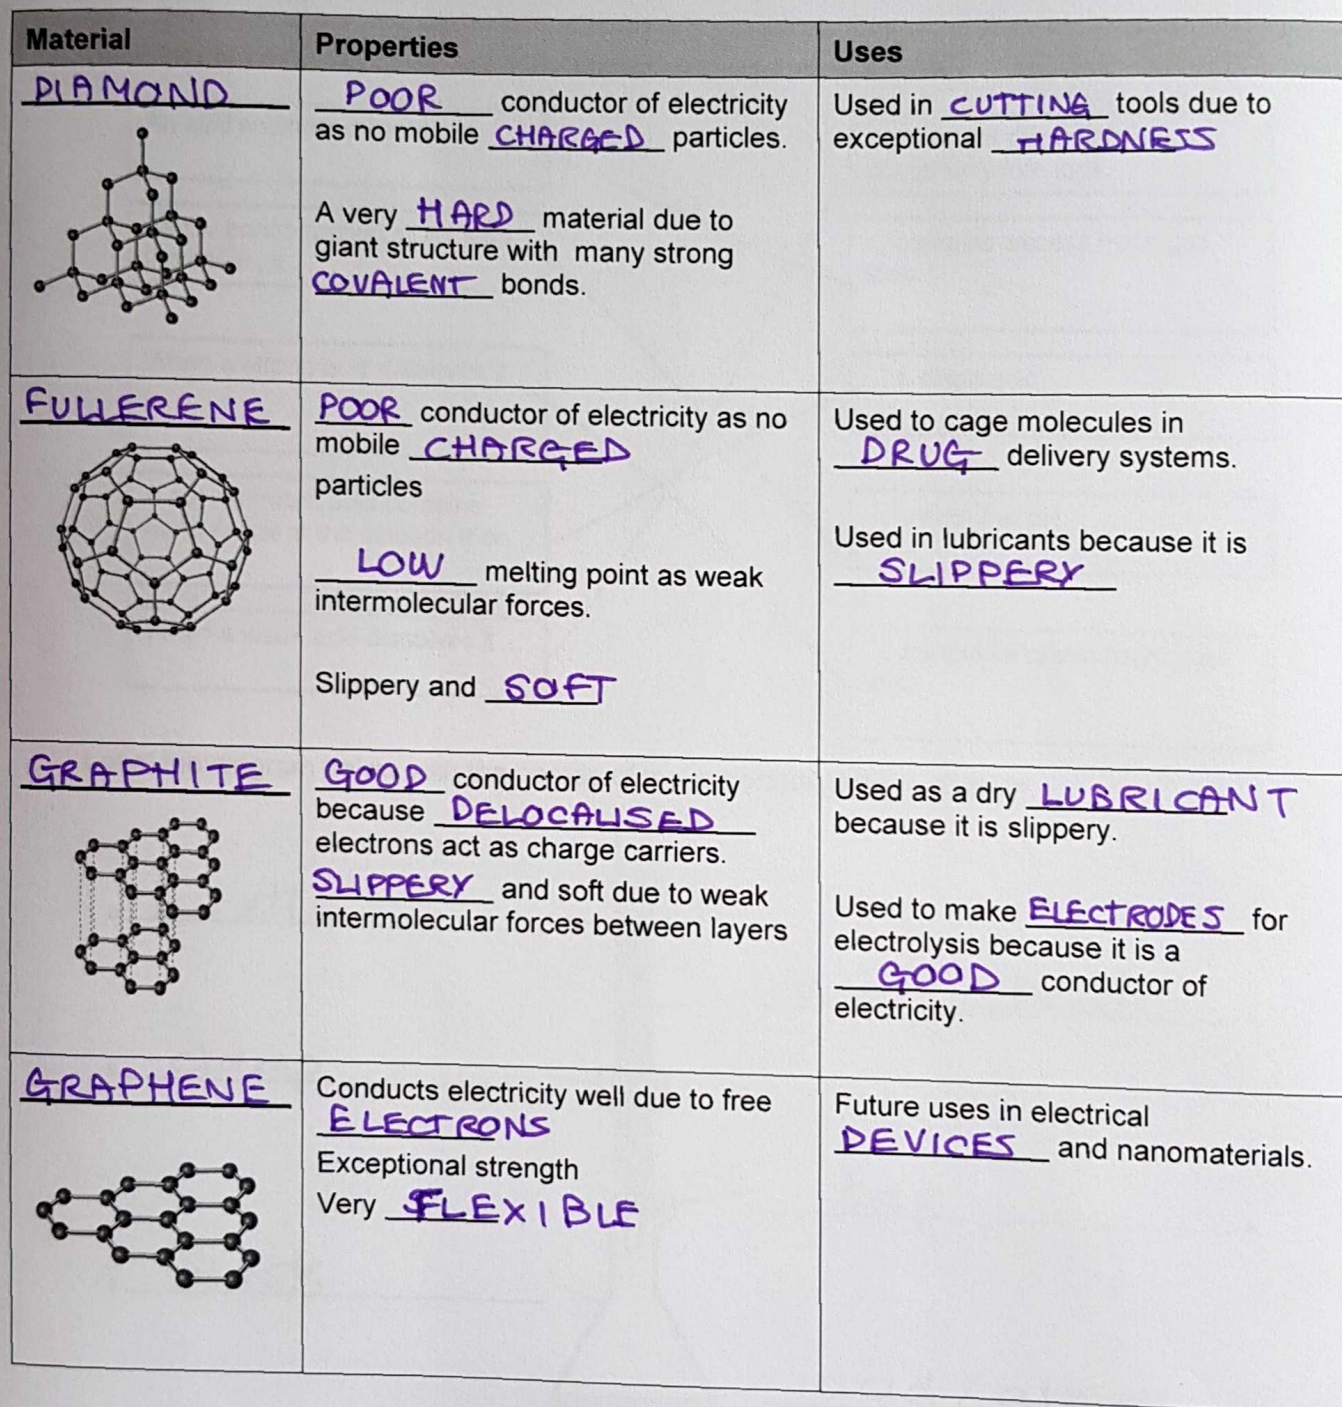 Material Properties Uses
DIAMOND
POOR conductor of electricity
as no mobile CHARGED particles.
A very HARD material due to
giant structure with many strong
COVALENT bonds.
Used in CUTTING tools due to
exceptional HARDNESS
FULLERENE
POOR conductor of electricity as no
mobile CHARGED
particles
LOW melting point as weak
intermolecular forces.
Slippery and SOFT
Used to cage molecules in
DRUG delivery systems.
Used in lubricants because it is
SLIPPERY
GRAPHITE
GOOD conductor of electricity
because DELOCALISED
electrons act as charge carriers.
SLIPPERY and soft due to weak
intermolecular forces between layers
Used as a dry LUBRICANT
because it is slippery.
Used to make ELECTRODES for
electrolysis because it is a
GOOD conductor of
electricity.
GRAPHENE
Conducts electricity well due to free
ELECTRONS
Exceptional strength
Very FLEXIBLE
Future uses in electrical
DEVICES and nanomaterials.